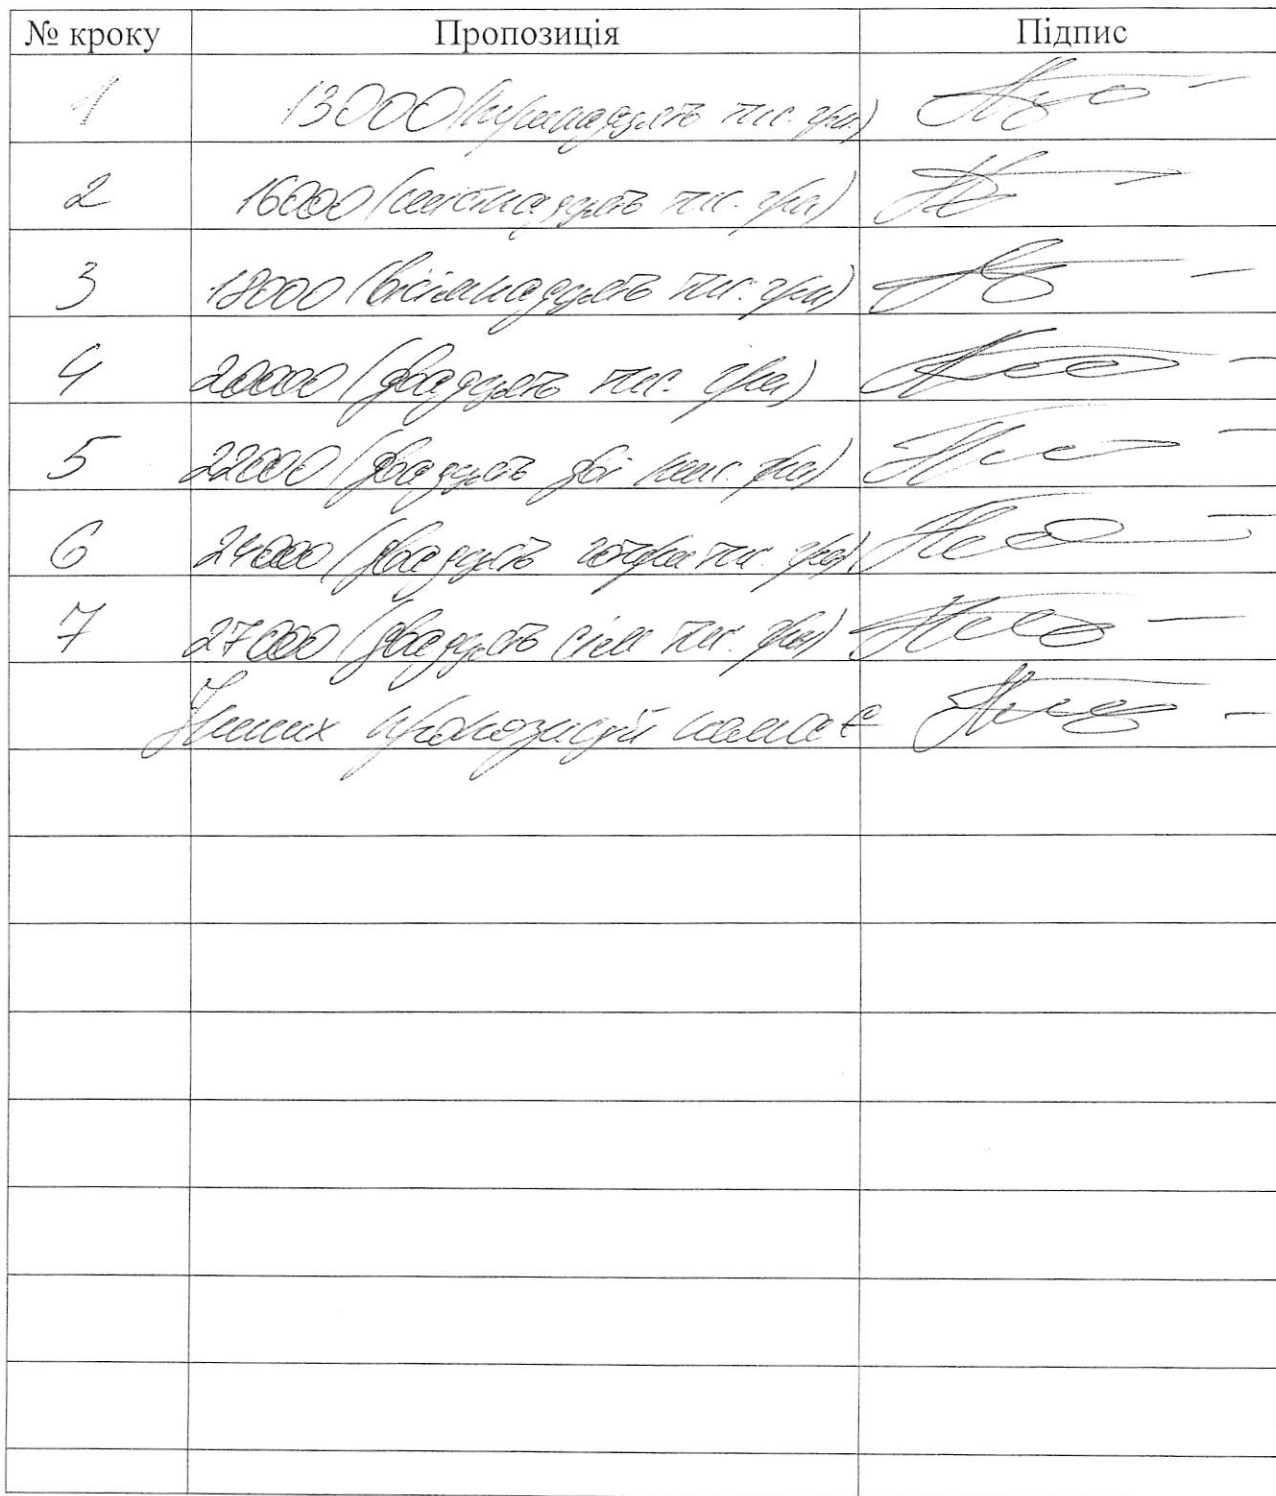 № кроку Пропозиція Підпис
1 13000 (тринадцять тис. грн.)
2 16000 (шістнадцять тис. грн)
3 18000 (вісімнадцять тис. грн)
4 20000 (двадцять тис. грн)
5 22000 (двадцять дві тис. грн)
6 24000 (двадцять чотири тис. грн)
7 27000 (двадцять сім тис. грн)
Інших пропозицій немає